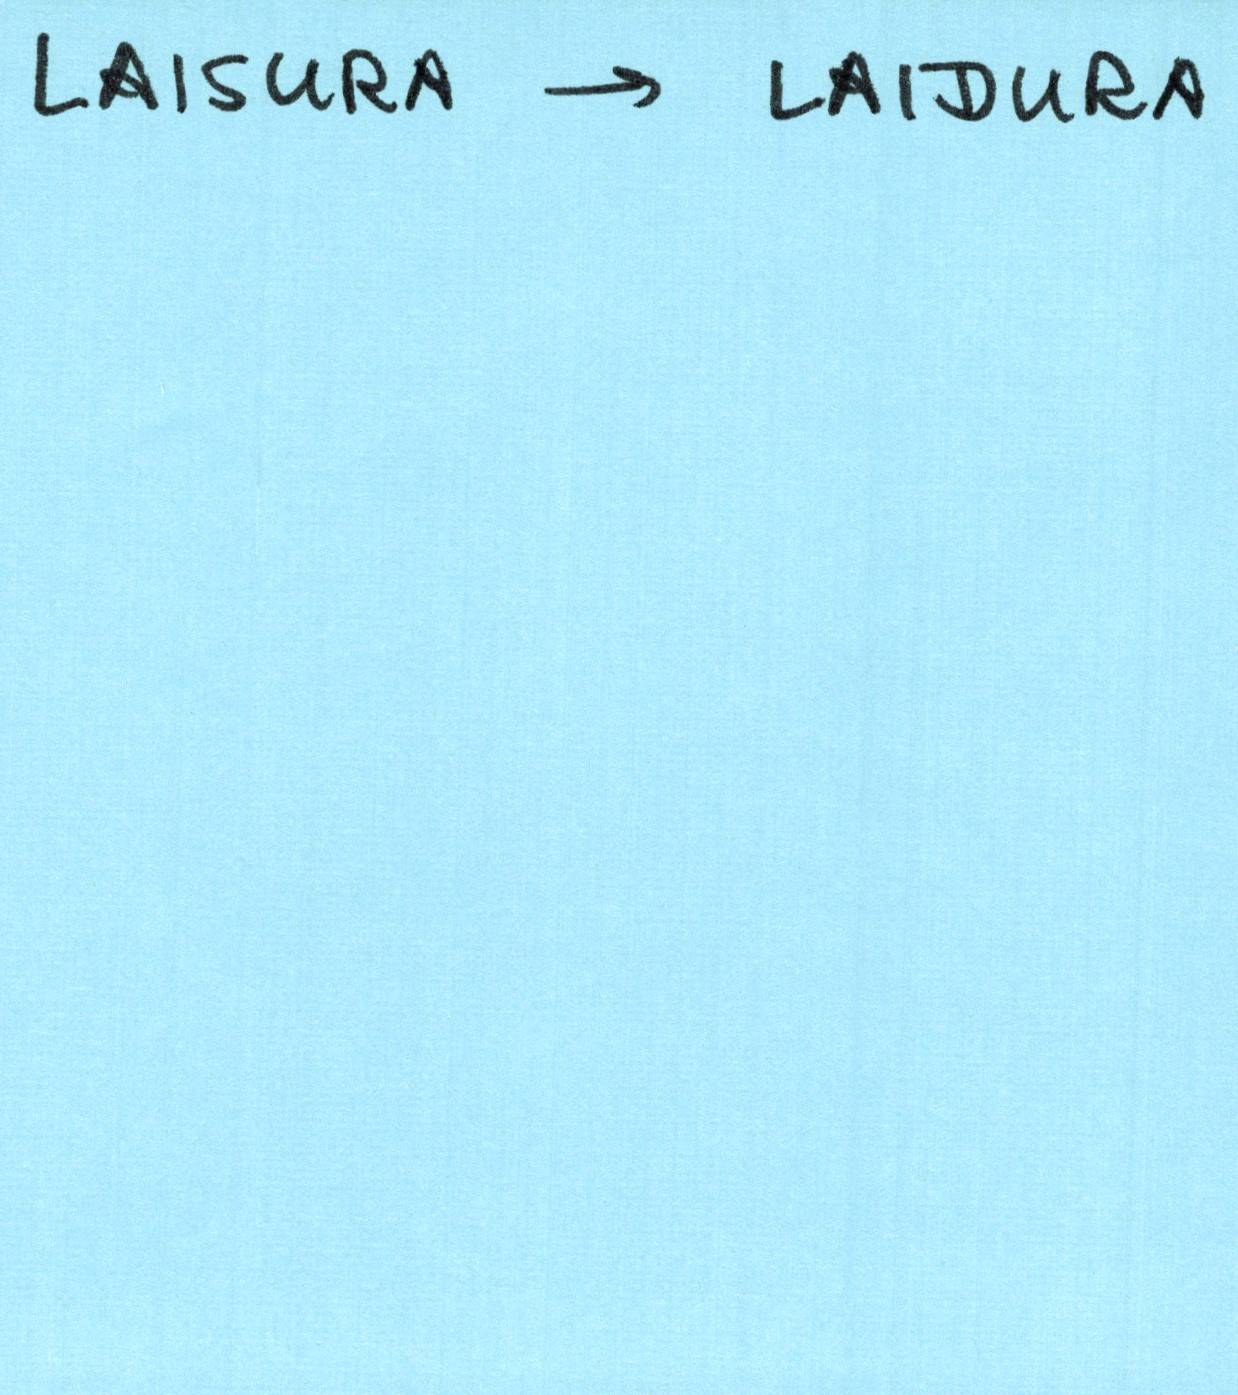 LAISURA → LAIDURA